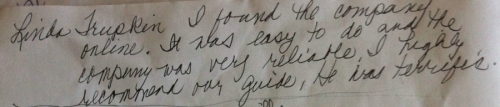 Linda Trupkin I found the company
online. It was easy to do and the
company was very reliable. I highly
recommend our guide, he was terrific.